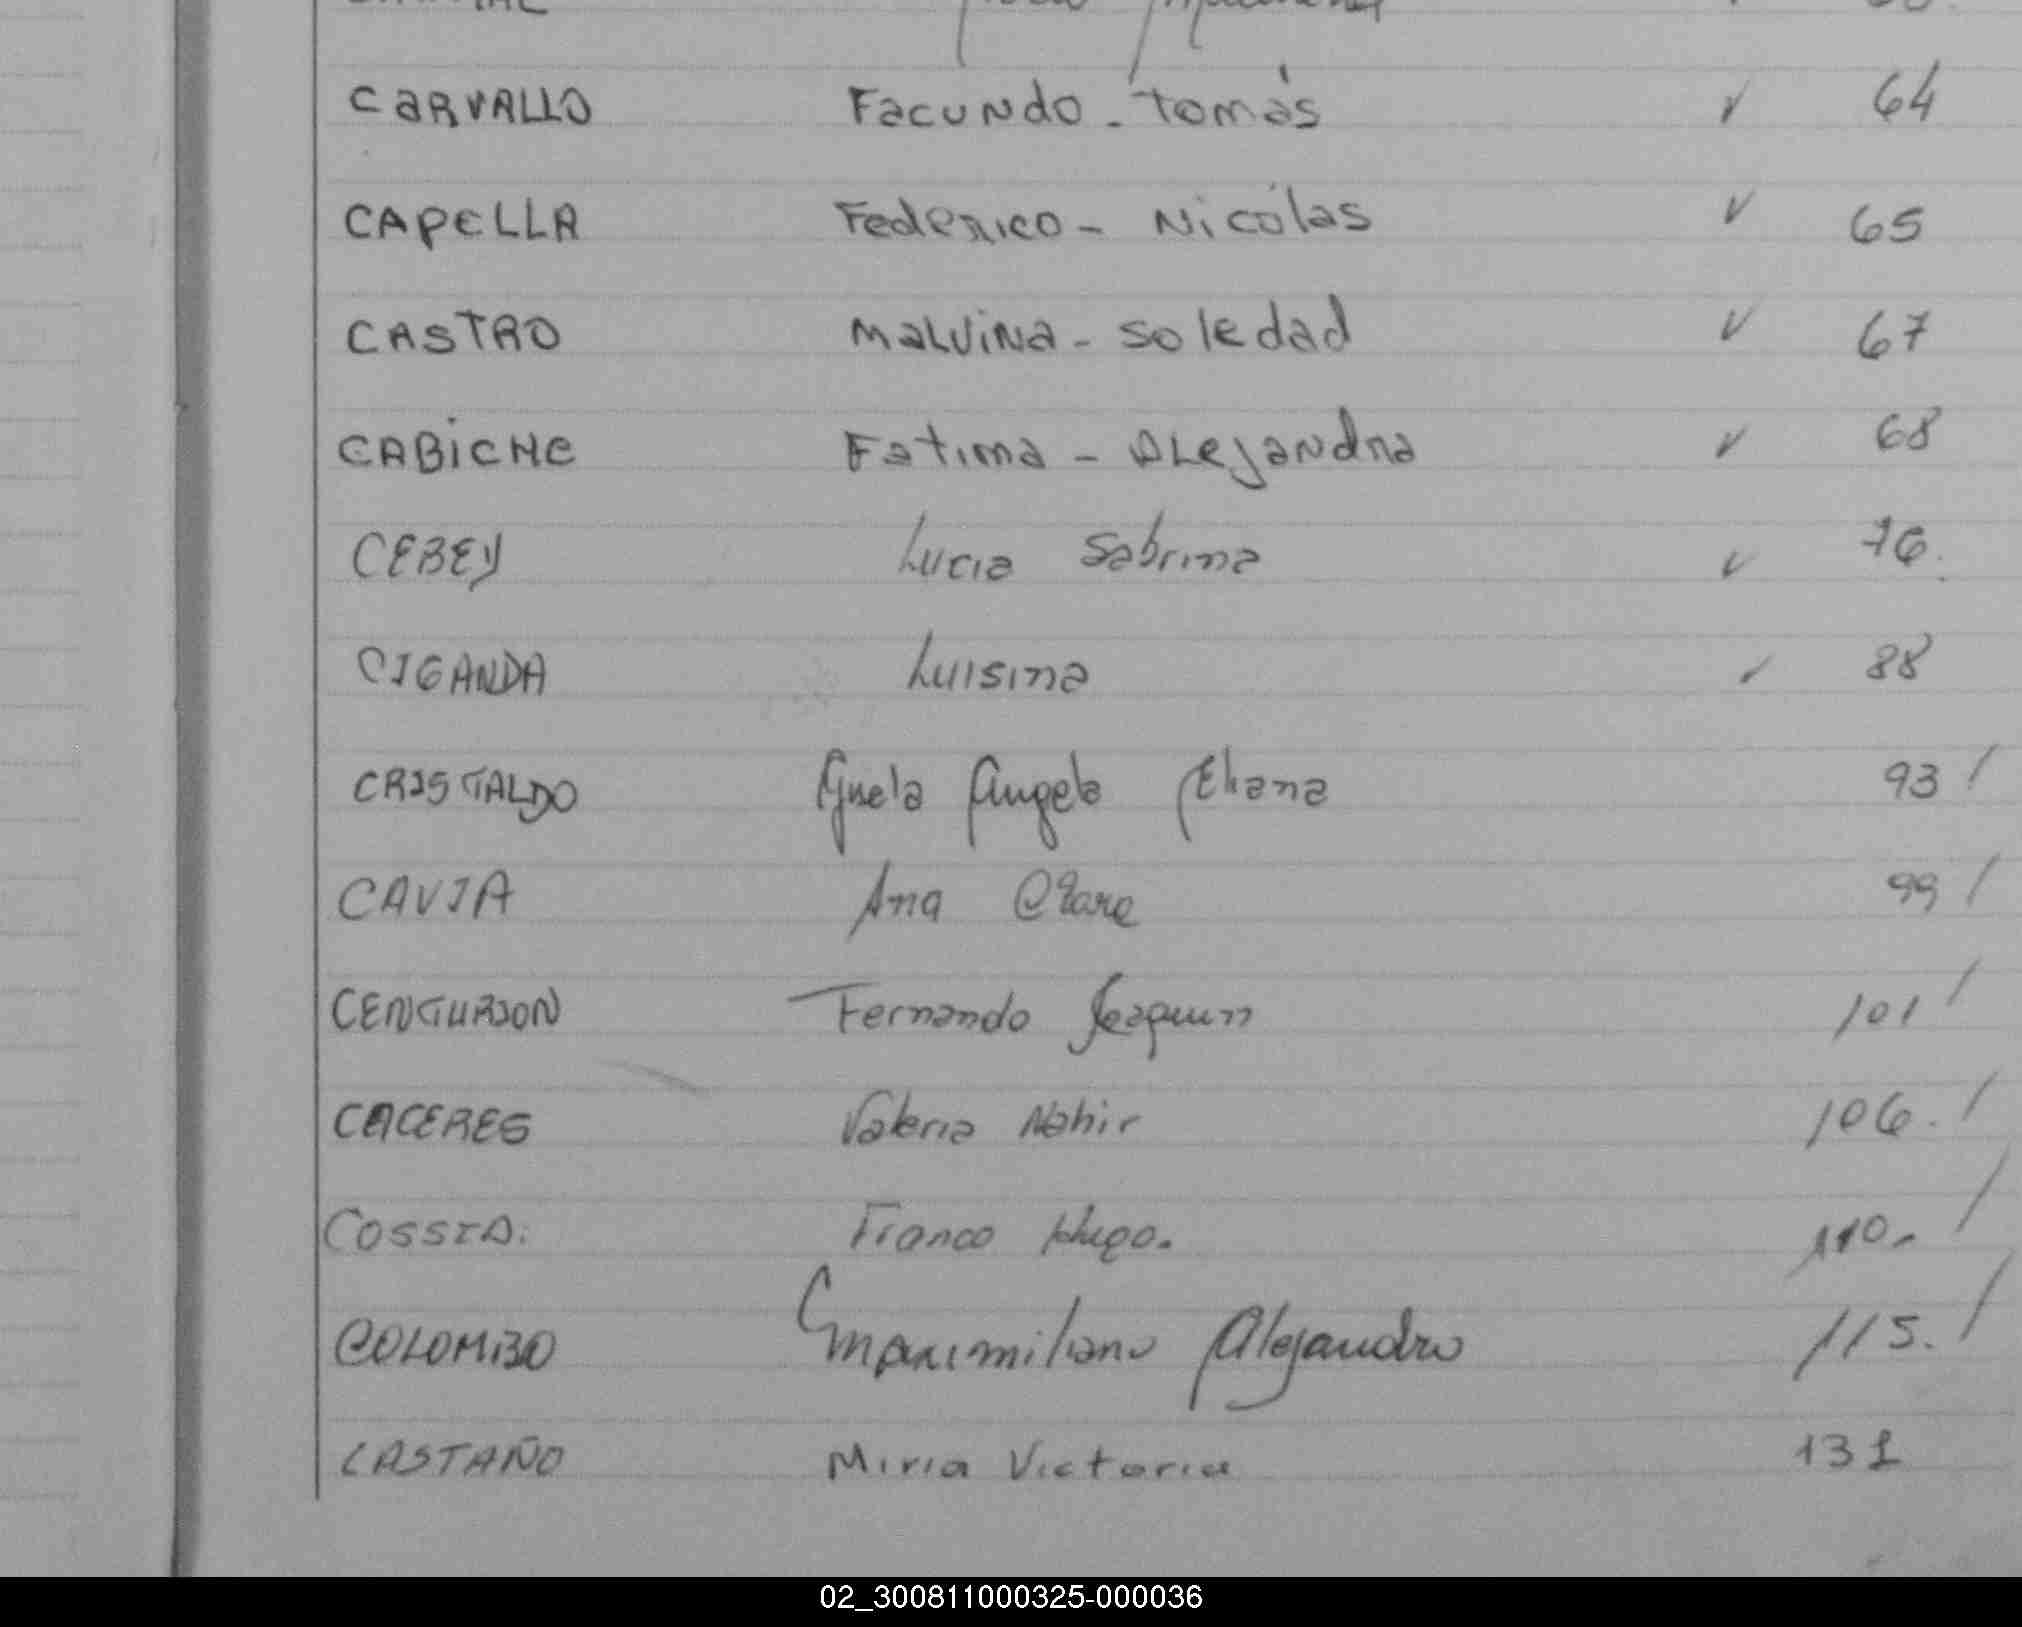 CARVALLO Facundo - Tomás ✓ 64
CAPELLA Federico - Nicólas ✓ 65
CASTRO Malvina - Soledad ✓ 67
CABICHE Fatima - Alejandra ✓ 68
CEBEY Lucia Sabrina ✓ 76.
CIGANDA Luisina ✓ 88
CRISTALDO Angela Eliana 93 /
CAVIA Ana Clara 99 /
CENTURION Fernando Joaquin 101 /
CACERES Valeria Nahir 106. /
COSSIA: Franco Hugo. 110.- /
COLOMBO Emaximiliano Alejandro 115. /
CASTAÑO Miria Victoria 131
02_300811000325-000036